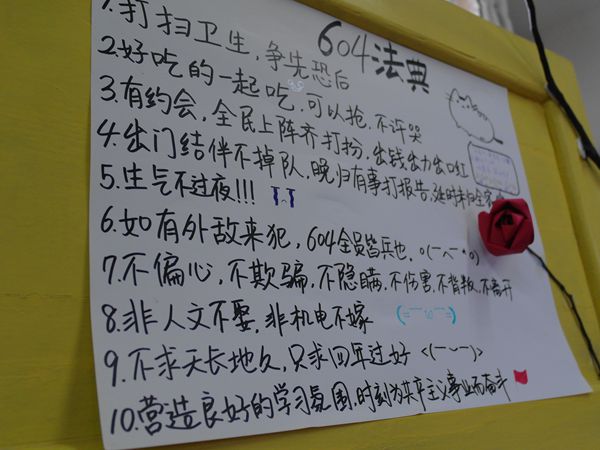 604法典
1.打扫卫生,争先恐后
2.好吃的一起吃,可以抢,不许哭
3.有约会,全民上阵齐打扮,出钱出力出口红
4.出门结伴不掉队,晚归有事打报告,延时未归全家
5.生气不过夜!!!
6.如有外敌来犯,604全员皆兵也.
7.不偏心,不欺骗,不隐瞒,不伤害,不背叛,不离开
8.非人文不娶,非机电不嫁
9.不求天长地久,只求四年过好
10.营造良好的学习氛围,时刻为共产主义事业而奋斗